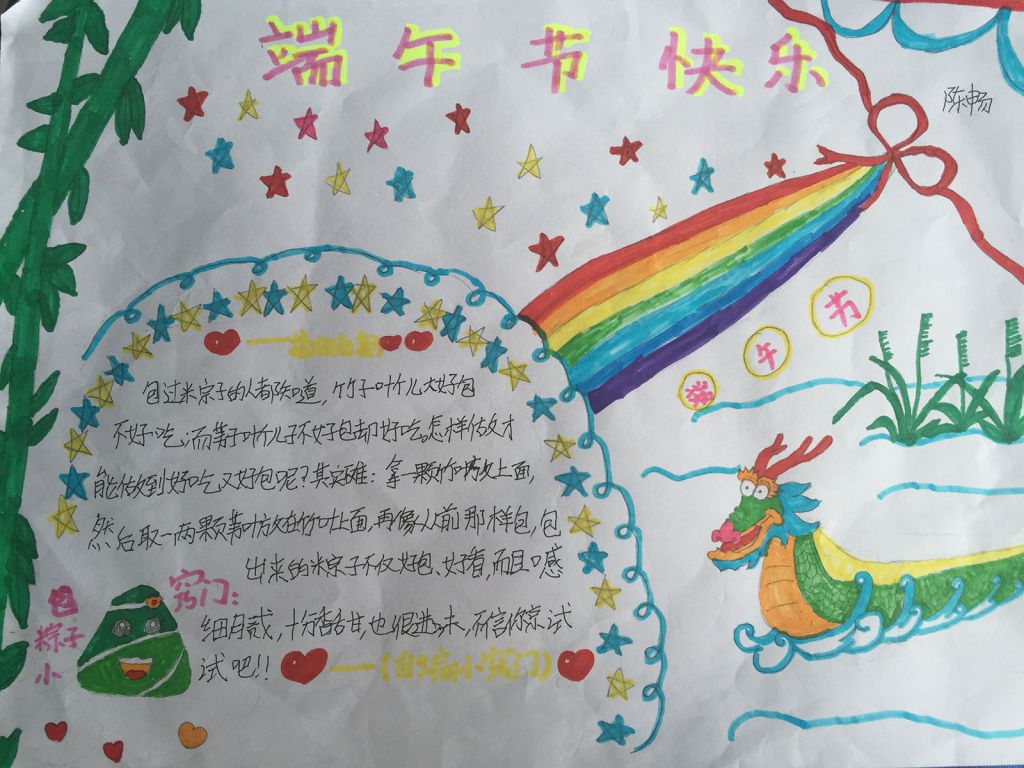 端午节快乐
陈畅
端午节
包过粽子的人都知道,竹子叶儿大好包
不好吃;而箬子叶儿不好包却好吃。怎样做才
能做到好吃又好包呢?其实不难:拿一颗竹叶放上面,
然后取一两颗箬叶放在竹叶上面,再像从前那样包,包
出来的粽子不仅好包、好看,而且口感
细腻,十分香甜也很进味,不信你就试
试吧!!
包粽子小
窍门:
小窍门)